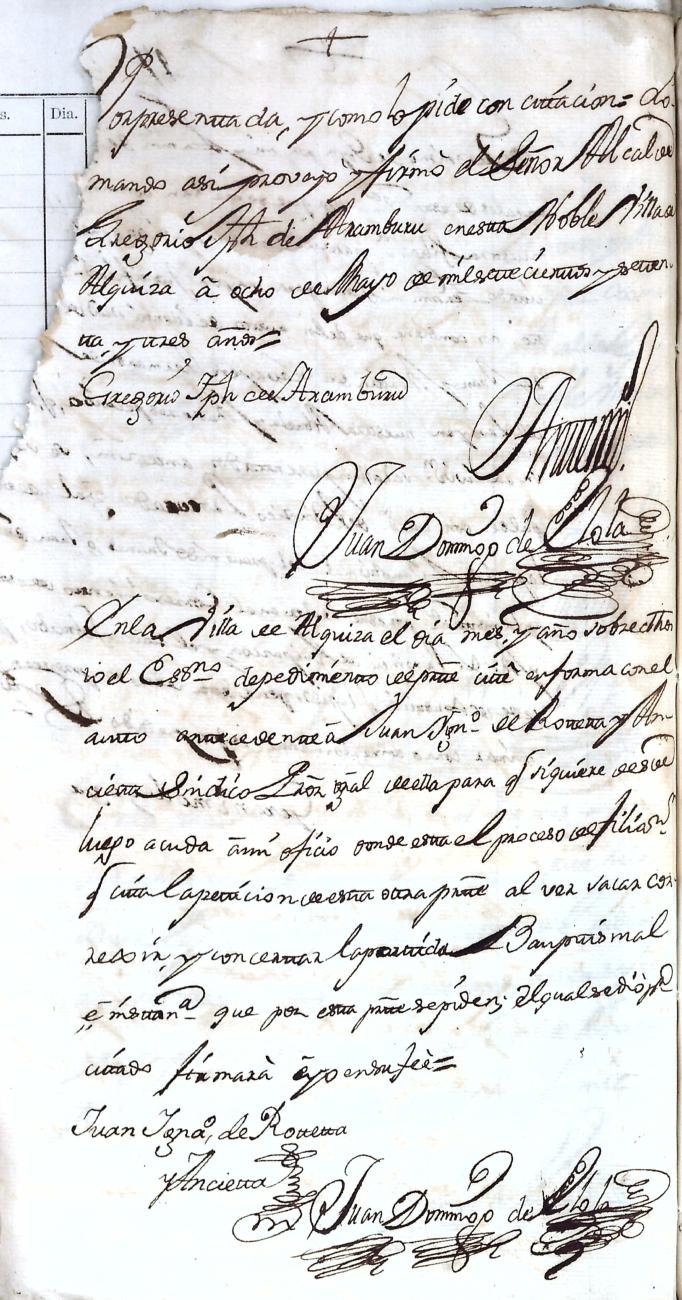 s. Dia.
+
Por presenttada, y como lo pide con cittacion= lo
mando asi proveyó y firmó el Señor Alcalde
Gregorio Jph de Aramburu en esta Noble Villa de
Alquiza â ocho de Mayo de mil settecientos y setten
tta, y tres años=
Gregorio Jph de Aramburu
Antemi
Juan Domingo de Lola
En la Villa de Alquiza el dia mes, y año sobredho
io el Essno de pedimento de prtte citté en forma con el
autto antecedente â Juan Ignº de Rotteta y An
cietta Sindico Pror gral de ella para q si quiere desde
luego acuda âmi oficio donde esta el proceso de
q citta la peticion de esta otra prtte al ver sacar cor
rexir, y concertar la partida Bauptismal
é insttanª que por esta prtte se piden; el qual se dió pr
cittado firmará é yo en su feê=
Juan Ignaº de Rotteta
y Ancietta
Juan Domingo de Lola